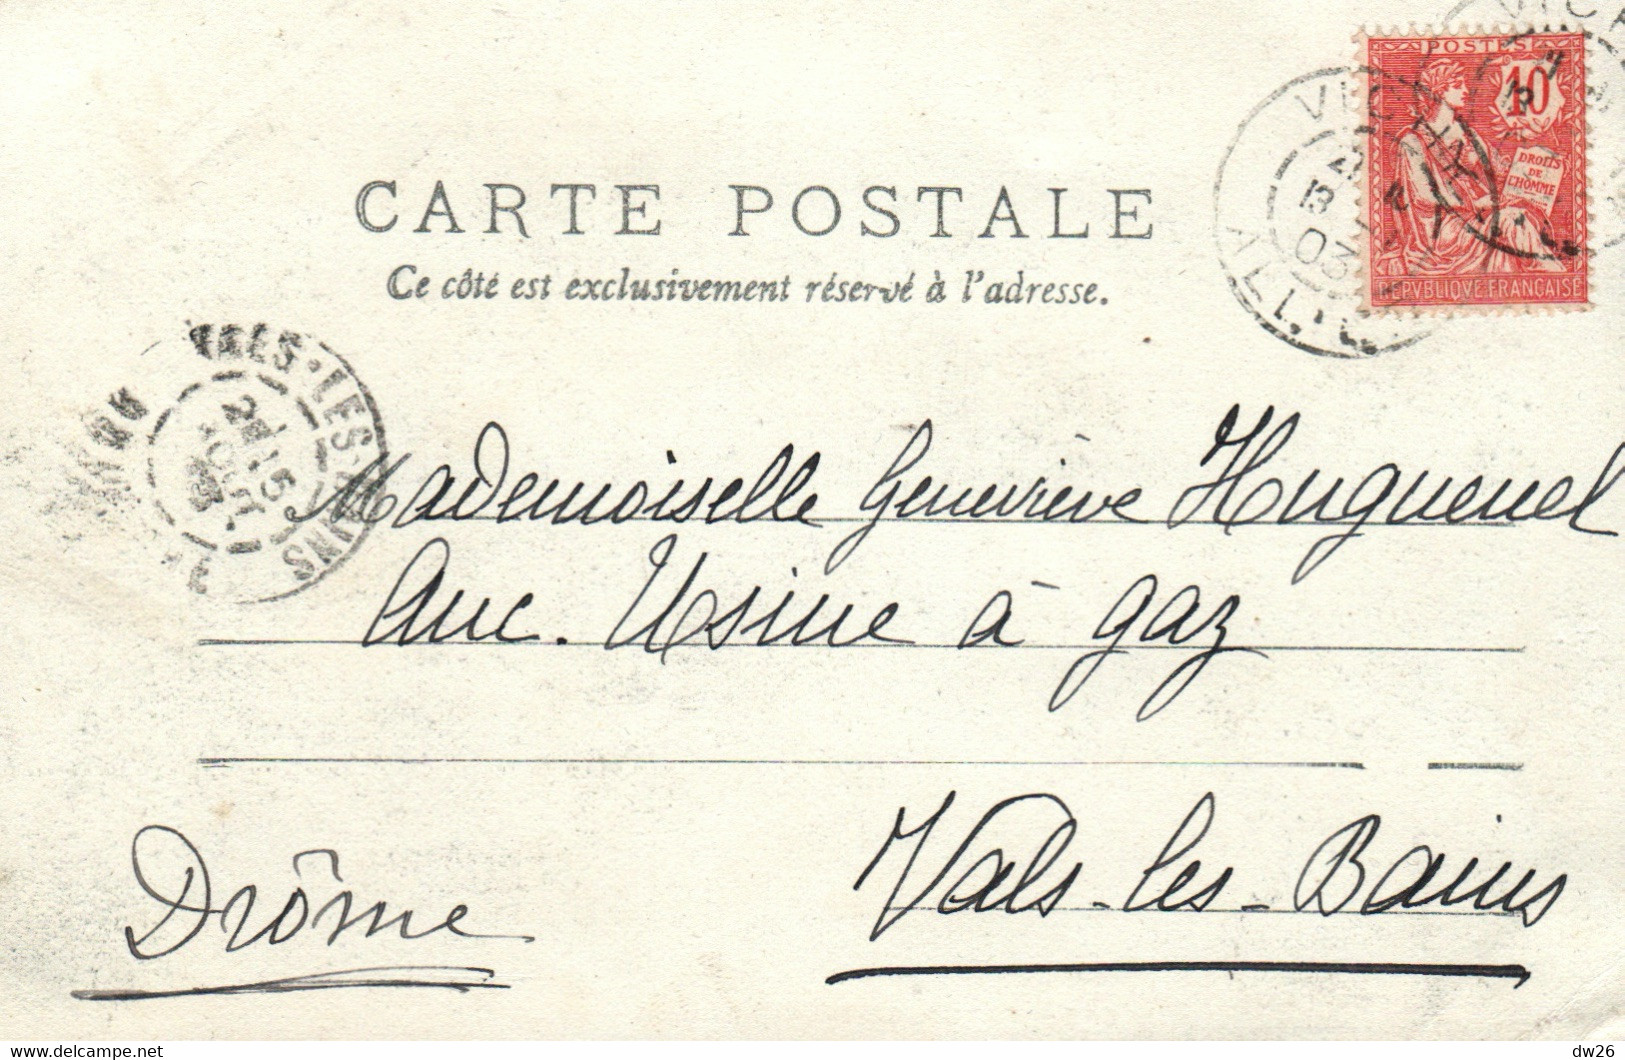 POSTES
10
DROITS
DE
L'HOMME
REPVBLIQVE FRANÇAISE
VICHY
13
03
CARTE POSTALE
Ce côté est exclusivement réservé à l'adresse.
LES
15
AOUT
03
Mademoiselle Geneviève Huguenel
Anc. Usine à gaz
Vals-les-Bains
Drôme
delcampe.net
dw26